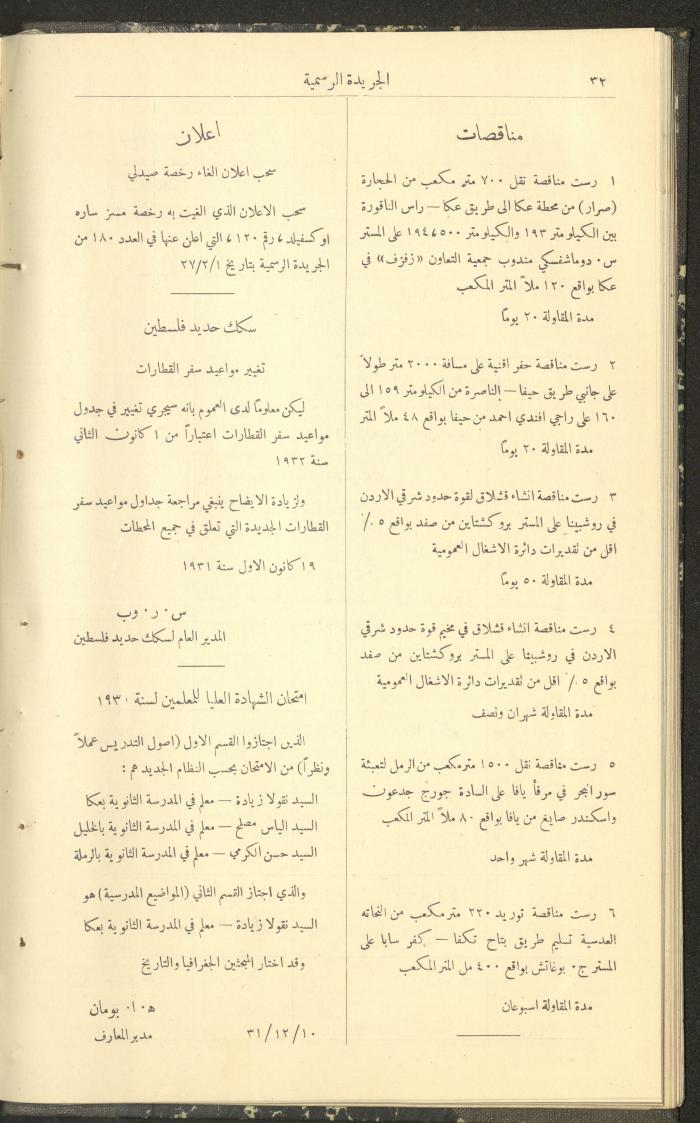 ٣٢
الجريدة الرسمية
مناقصات
١ رست مناقصة نقل ٧٠٠ متر مكعب من الحجارة
(صرار) من محطة عكا الى طريق عكا — راس الناقورة
بين الكيلومتر ١٩٣ والكيلومتر ١٩٤٧٥٠٠ على المستر
س٠ دوماشفسكي مندوب جمعية التعاون «زفزف» في
عكا بواقع ١٢٠ ملاً المتر المكعب
مدة المقاولة ٢٠ يوماً
٢ رست مناقصة حفر اقنية على مسافة ٢٠٠٠ متر طولاً
على جانبي طريق حيفا — الناصرة من الكيلومتر ١٥٩ الى
١٦٠ على راجي افندي احمد من حيفا بواقع ٤٨ ملاً المتر
مدة المقاولة ٢٠ يوماً
٣ رست مناقصة انشاء قشلاق لقوة حدود شرقي الاردن
في روشبينا على المستر بروكشتاين من صفد بواقع ٥ ٪
اقل من تقديرات دائرة الاشغال العمومية
مدة المقاولة ٥٠ يوماً
٤ رست مناقصة انشاء قشلاق في مخيم قوة حدود شرقي
الاردن في روشبينا على المستر بروكشتاين من صفد
بواقع ٥ ٪ اقل من تقديرات دائرة الاشغال العمومية
مدة المقاولة شهران ونصف
٥ رست مناقصة نقل ١٥٠٠ متر مكعب من الرمل لتعبئة
سور البحر في مرفأ يافا على السادة جورج جدعون
واسكندر صايغ من يافا بواقع ٨٠ ملاً المتر المكعب
مدة المقاولة شهر واحد
٦ رست مناقصة توريد ٢٢٠ متر مكعب من النحاته
العدسية تسليم طريق بتاح تكفا — كفر سابا على
المستر ج٠ بوغاتش بواقع ٤٠٠ مل المتر المكعب
مدة المقاولة اسبوعان
اعلان
سحب اعلان الغاء رخصة صيدلي
سحب الاعلان الذي الغيت به رخصة مسز ساره
اوكسفيلد، رقم ١٢٠، التي اعلن عنها في العدد ١٨٠ من
الجريدة الرسمية بتاريخ ٢٧/٢/١
سكك حديد فلسطين
تغيير مواعيد سفر القطارات
ليكن معلوماً لدى العموم بانه سيجري تغيير في جدول
مواعيد سفر القطارات اعتباراً من ١ كانون الثاني
سنة ١٩٣٢
ولزيادة الايضاح ينبغي مراجعة جداول مواعيد سفر
القطارات الجديدة التي تعلق في جميع المحطات
١٩ كانون الاول سنة ١٩٣١
س٠ ر٠ وب
المدير العام لسكك حديد فلسطين
امتحان الشهادة العليا للمعلمين لسنة ١٩٣٠
الذين اجتازوا القسم الاول (اصول التدريس عملاً
ونظراً) من الامتحان بحسب النظام الجديد هم :
السيد نقولا زيادة — معلم في المدرسة الثانوية بعكا
السيد الياس مصلح — معلم في المدرسة الثانوية بالخليل
السيد حسن الكرمي — معلم في المدرسة الثانوية بالرملة
والذي اجتاز القسم الثاني (المواضيع المدرسية) هو
السيد نقولا زيادة — معلم في المدرسة الثانوية بعكا
وقد اختار المبحثين الجغرافيا والتاريخ
ه٠ ا٠ بومان
٣١/١٢/١٠ مدير المعارف